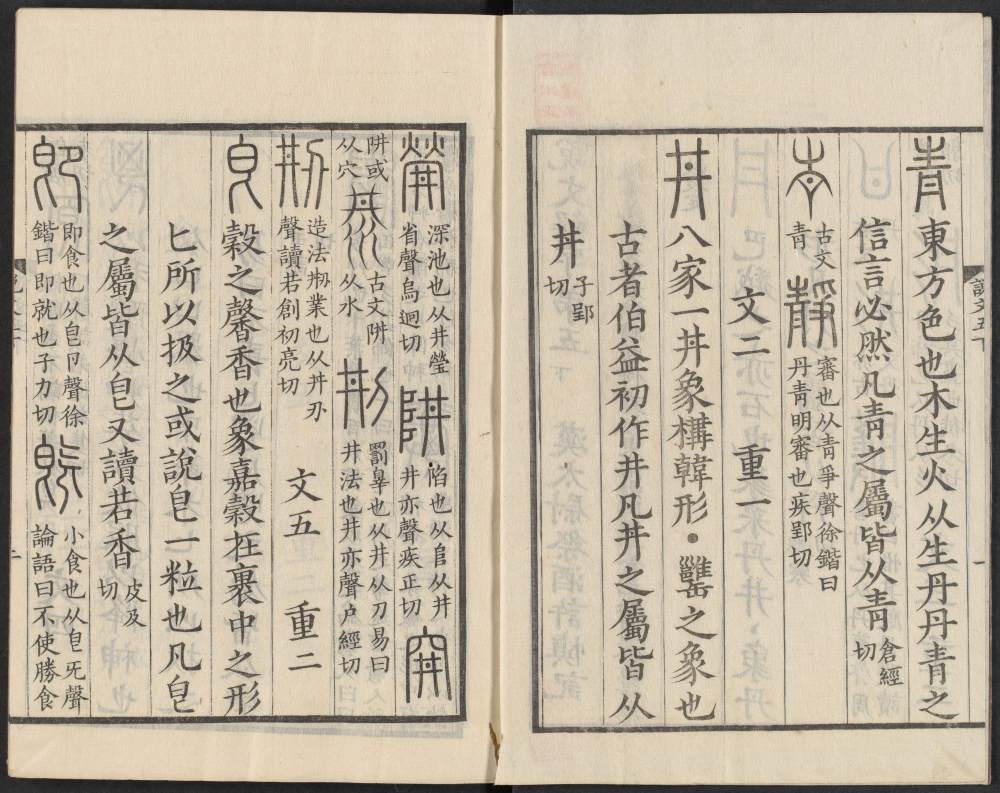 靑東方色也木生火从生丹丹青之
信言必然凡青之屬皆从青倉經切
古文青靜審也从青爭聲徐鍇曰丹青明審也疾郢切
文二 重一
丼八家一丼象構韓形·𦉥之象也
古者伯益初作井凡丼之屬皆从
丼子郢切
說文五下 一
深池也从井瑩省聲烏迥切阱陷也从𨸏从井井亦聲疾正切穽
阱或从穴古文阱从水㓝罰辠也从井从刀易曰井法也井亦聲户經切
刱造法刱業也从丼刅聲讀若創初亮切 文五 重二
皀穀之馨香也象嘉穀在裹中之形
匕所以扱之或說皀一粒也凡皀
之屬皆从皀又讀若香皮及切
即即食也从皀卪聲徐鍇曰即就也子力切旣小食也从皀旡聲論語曰不使勝食